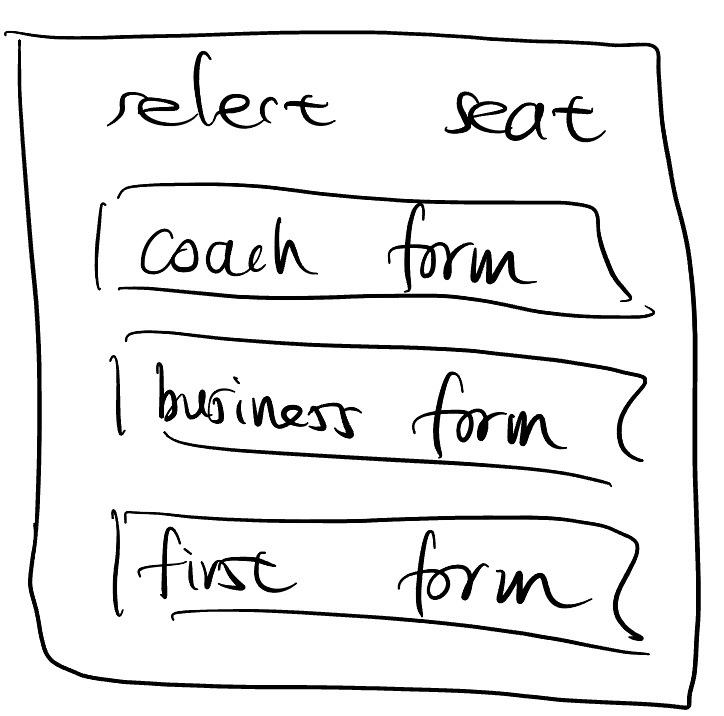 select seat
coach form
business form
first form